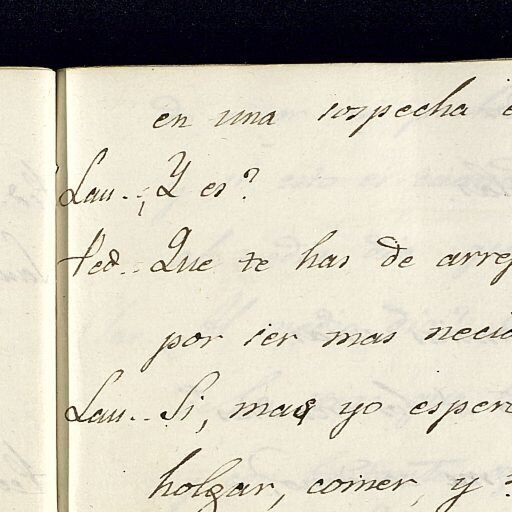 en una sospecha
Lau.. ¿Y es?
Ped.. Que te has de arre
por ser mas neci
Lau.. Si, mas yo esper
holgar, comer, y